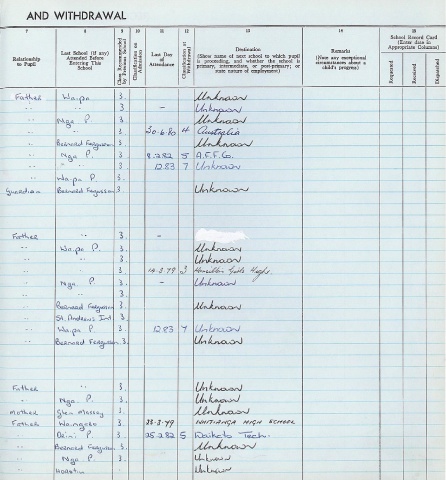 AND WITHDRAWAL
7 8 9 10 11 12 13 14 15
Relationship to Pupil
Last School (if any) Attended Before Entering This School
Last Day of Attendance
Destination
(Show name of next school to which pupil is proceeding, and whether the school is primary, intermediate, or post-primary; or state nature of employment)
Remarks
(Note any exceptional circumstances about a child's progress)
School Record Card
(Enter date in Appropriate Columns)
Requested
Received
Dispatched
Father Waipa 3. Unknown
" " 3. - Unknown
" Nga P. 3. Unknown
" " 3. 30.6.80 4 Australia
" Bernard Ferguson 3. Unknown
" Nga P. 3. 8.2.82 5 A.F.F.Co.
" " 3. 12.83 7 Unknown
" Waipa P. 3.
Guardian Bernard Ferguson 3 Unknown
Father " 3. -
" Waipa P. 3. Unknown
" " 3. Unknown
" " 3. 14.3.79 3 Hamilton Girls High.
" Nga P. 3. - Unknown
" " 3.
" Bernard Ferguson 3. Unknown
" St. Andrews Int 3.
" Waipa P. 3. 12.83 7 Unknown
" Bernard Ferguson 3. Unknown
Father " 3. Unknown
" Nga P. 3. Unknown
Mother Glen Massey 3. Unknown
Father 3. WHITIANGA HIGH SCHOOL
" P. 3. 25.2.82 5 Waikato Tech.
" Bernard Ferguson 3. Unknown
" Nga P. 3. Unknown
" Unknown